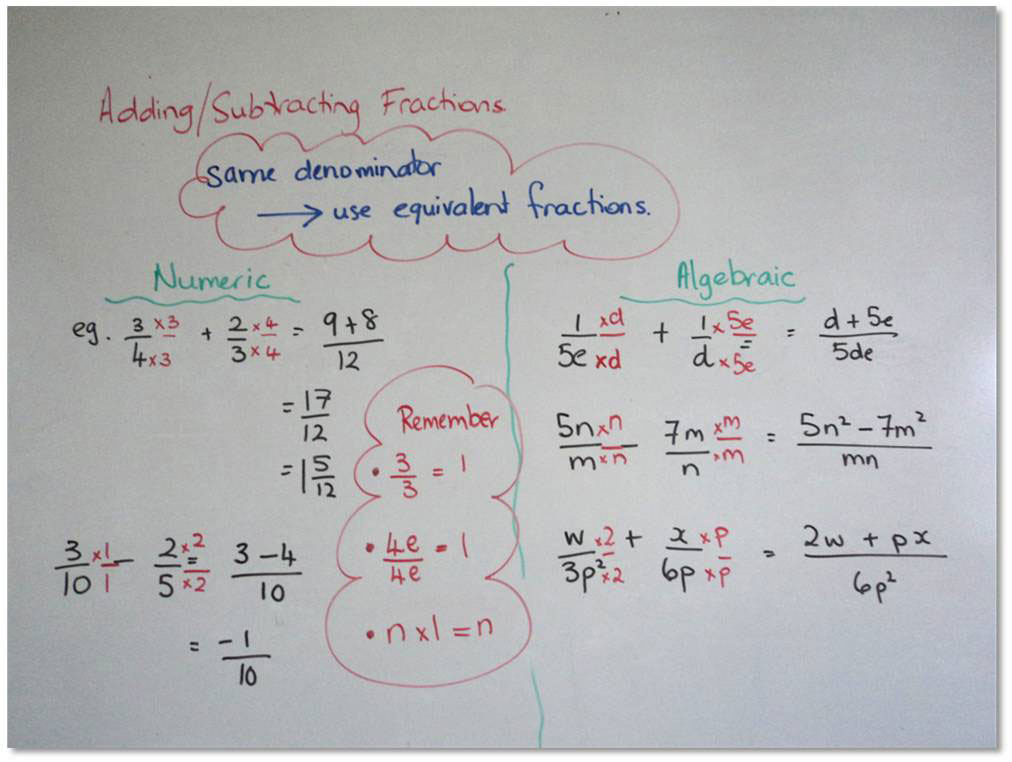 Adding/Subtracting Fractions
same denominator
→ use equivalent fractions.
Numeric
eg. 3/4 ×3/×3 + 2/3 ×4/×4 = (9+8)/12
= 17/12
= 1 5/12
3/10 ×1/1 − 2/5 ×2/×2 = (3−4)/10
= −1/10
Remember
• 3/3 = 1
• 4e/4e = 1
• n×1 = n
Algebraic
1/5e ×d/×d + 1/d ×5e/×5e = = (d+5e)/5de
5n/m ×n/×n − 7m/n ×m/×m = (5n²−7m²)/mn
w/3p² ×2/×2 + x/6p ×p/×p = (2w + px)/6p²